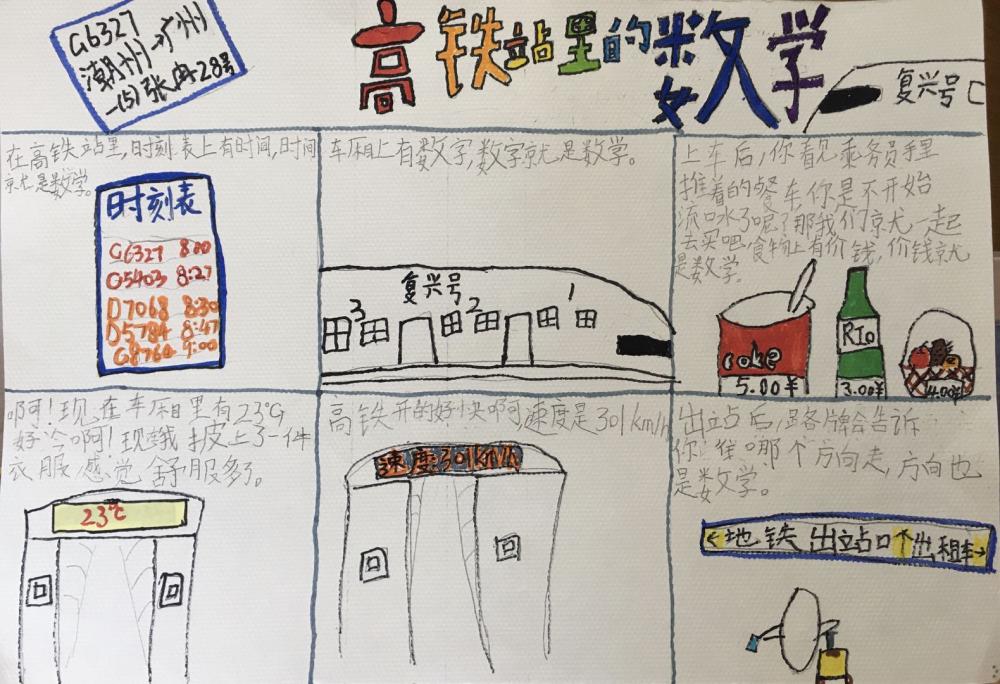 G6327
潮州→广州
一(5)张冉28号
高铁站里的数学
复兴号C
在高铁站里,时刻表上有时间,时间
就是数学。
时刻表
G6327 8:00
G5403 8:27
D7068 8:30
D5784 8:47
G8760 9:00
车厢上有数字,数字就是数学。
复兴号
3
2
1
上车后,你看见乘务员手里
推着的餐车,你是不开始
流口水了呢?那我们就一起
去买吧,食物上有价钱,价钱就
是数学。
coke
5.00¥
RIo
3.00¥
4.00¥
啊!现在车厢里有23°G
好冷啊!现我披上了一件
衣服感觉舒服多了。
23℃
回
回
高铁开的好快啊,速度是301km/h
速度301km/h
回
回
出站后,路牌会告诉
你往哪个方向走,方向也
是数学。
←地铁 出站口个出租车→